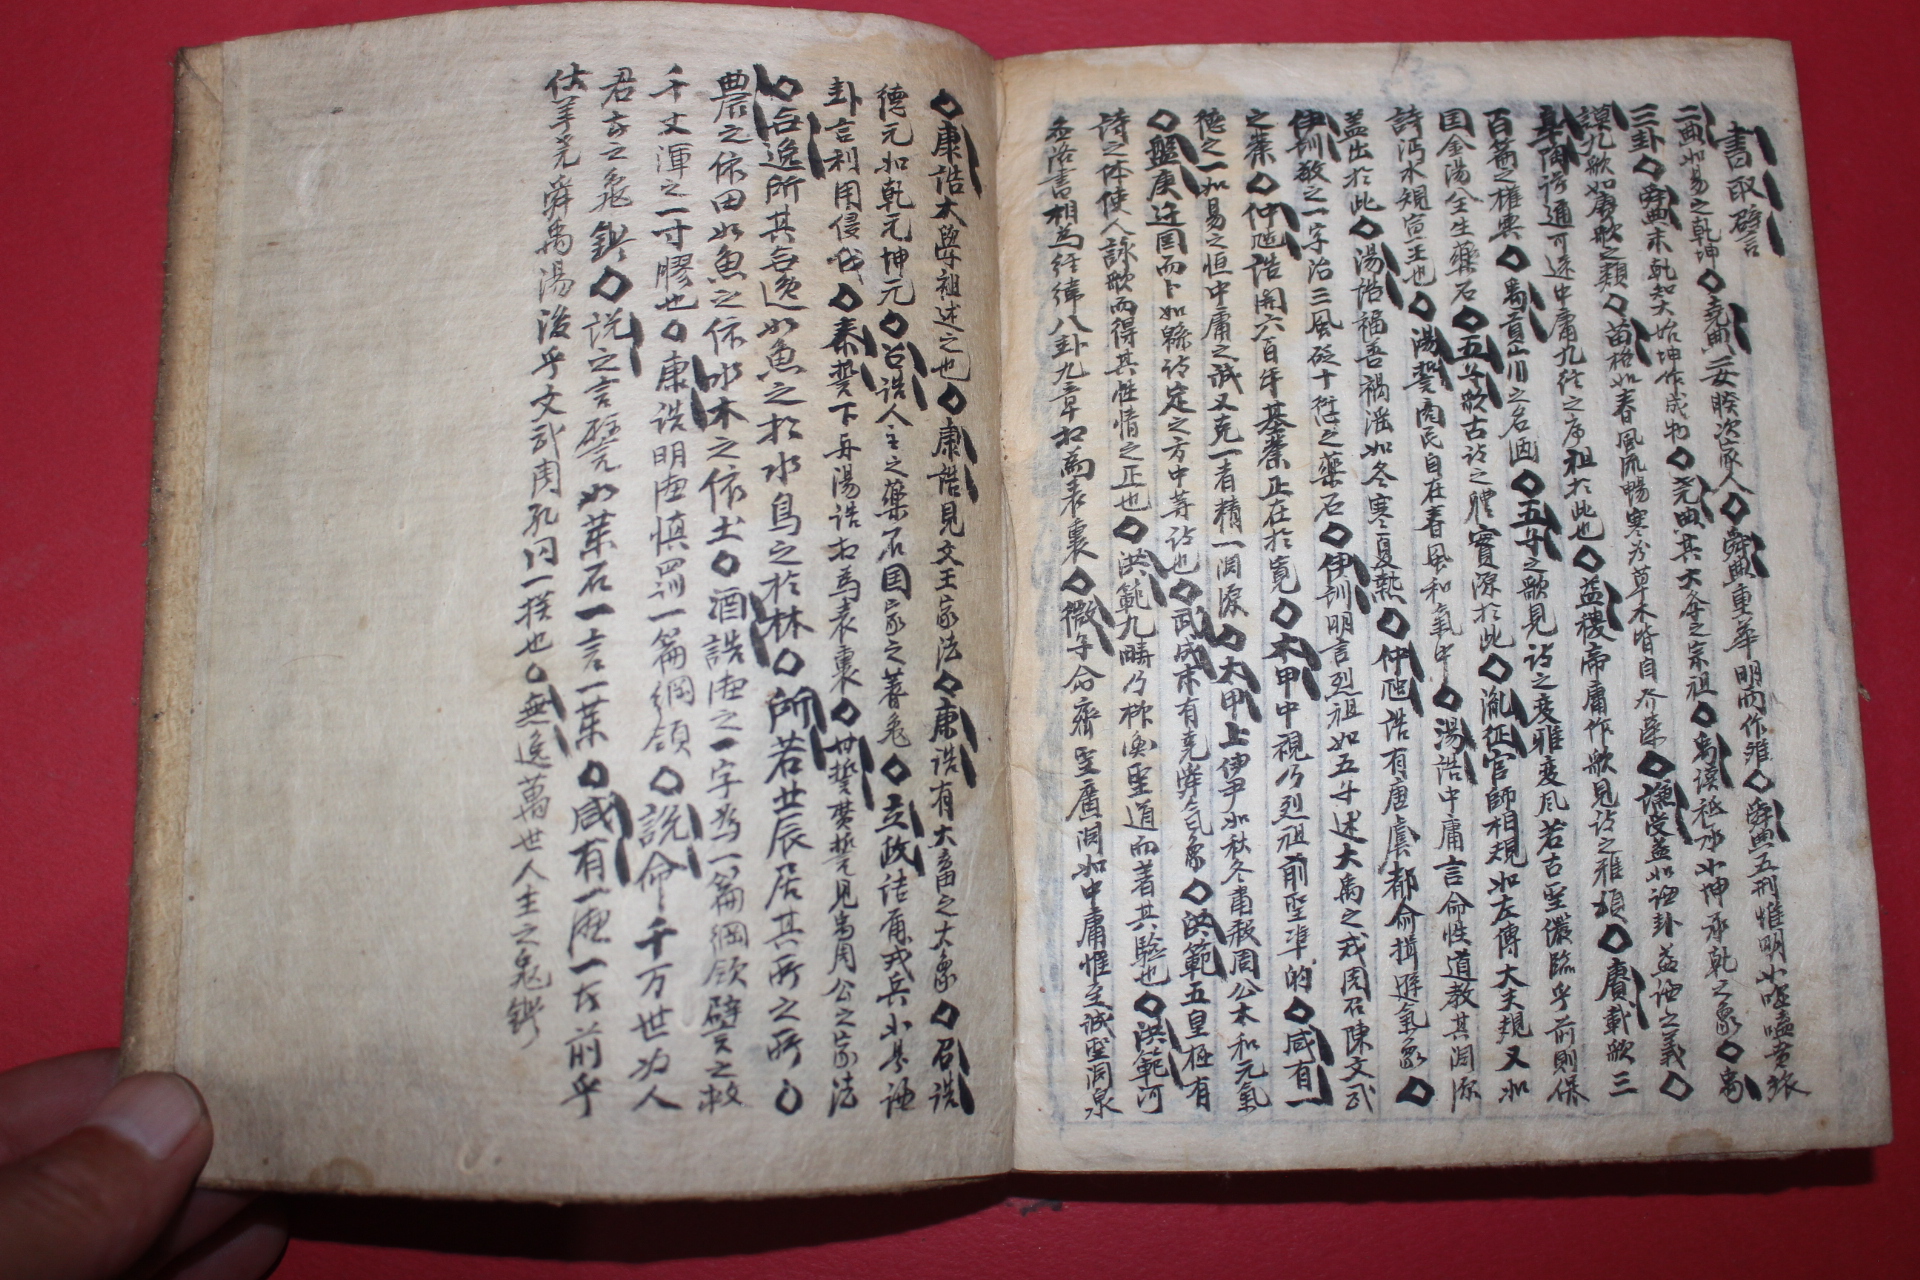 書取譬言
二典如易之乾坤◇堯典二女睽次家人◇舜典重華明兩作離◇舜典五刑惟明如噬嗑賁旅
三卦◇舜典末乾知大始坤作成物◇堯典其大學之宗祖◇禹謨祗承如坤承乾之象◇禹
謨九歌如賡歌之類◇苗格如春風流暢寒谷草木皆自◇謙受益如謙卦益謙之義◇
皐陶謨通可述中庸九經之序祖於此也◇益稷帝庸作歌見詩之雅頌◇賡載歌三
百篇之權輿◇禹貢山川之名画◇五子之歌見詩之変雅変風若古聖儼臨乎前則保
国金湯全生藥石◇五子歌古詩之體實源於此◇胤征官師相規如左傳大夫規又如
詩沔水規宣王也◇湯誓商民自在春風和氣中◇湯誥中庸言命性道教其淵源
盖出於此◇湯誥福善禍淫如冬寒夏熱◇仲虺誥有唐虞都俞揖遜氣象◇
伊訓敬之一字治三風砭十愆之藥石◇伊訓明言烈祖如五子述大禹之戒周召陳文武
之業◇仲虺誥開六百年基業正在於寬◇太甲中視乃烈祖前聖準的◇咸有一
德之一如易之恒中庸之誠又克一者精一淵源◇太甲上伊尹如秋冬肅殺周公本和元氣
◇盤庚迁国而卜如緜詩定之方中等詩也◇武成末有堯舜氣象◇洪範五皇極有
詩之体使人詠歌而得其性情之正也◇洪範九疇乃桥聖道而著其驗也◇洪範河
圖洛書相為經緯八卦九章相為表裏◇微子命齊聖廣淵如中庸惟至誠聖淵泉
◇康誥大學祖述之也◇康誥見文王家法◇康誥有大畜之大象◇召誥
德元如乾元坤元◇召誥人主之藥石国家之蓍龜◇立政詰爾戎兵如豫謙
卦言利用侵伐◇泰誓下与湯誥相為表裏◇牧誓費誓見禹周公之家法
◇無逸所其無逸如魚之於水鳥之於林◇所若北辰居其所之所◇
農之依田如魚之依水木之依土◇酒誥德之一字為一篇綱領譬言之救
千丈渾之一寸膠也◇康誥明德慎罰一篇綱領◇說命千万世為人
君者之龜鑑◇説之言句如藥石一言一藥◇咸有一德一在前乎
伏羊堯舜禹湯後乎文武周孔同一揆也◇無逸萬世人主之龜鑑